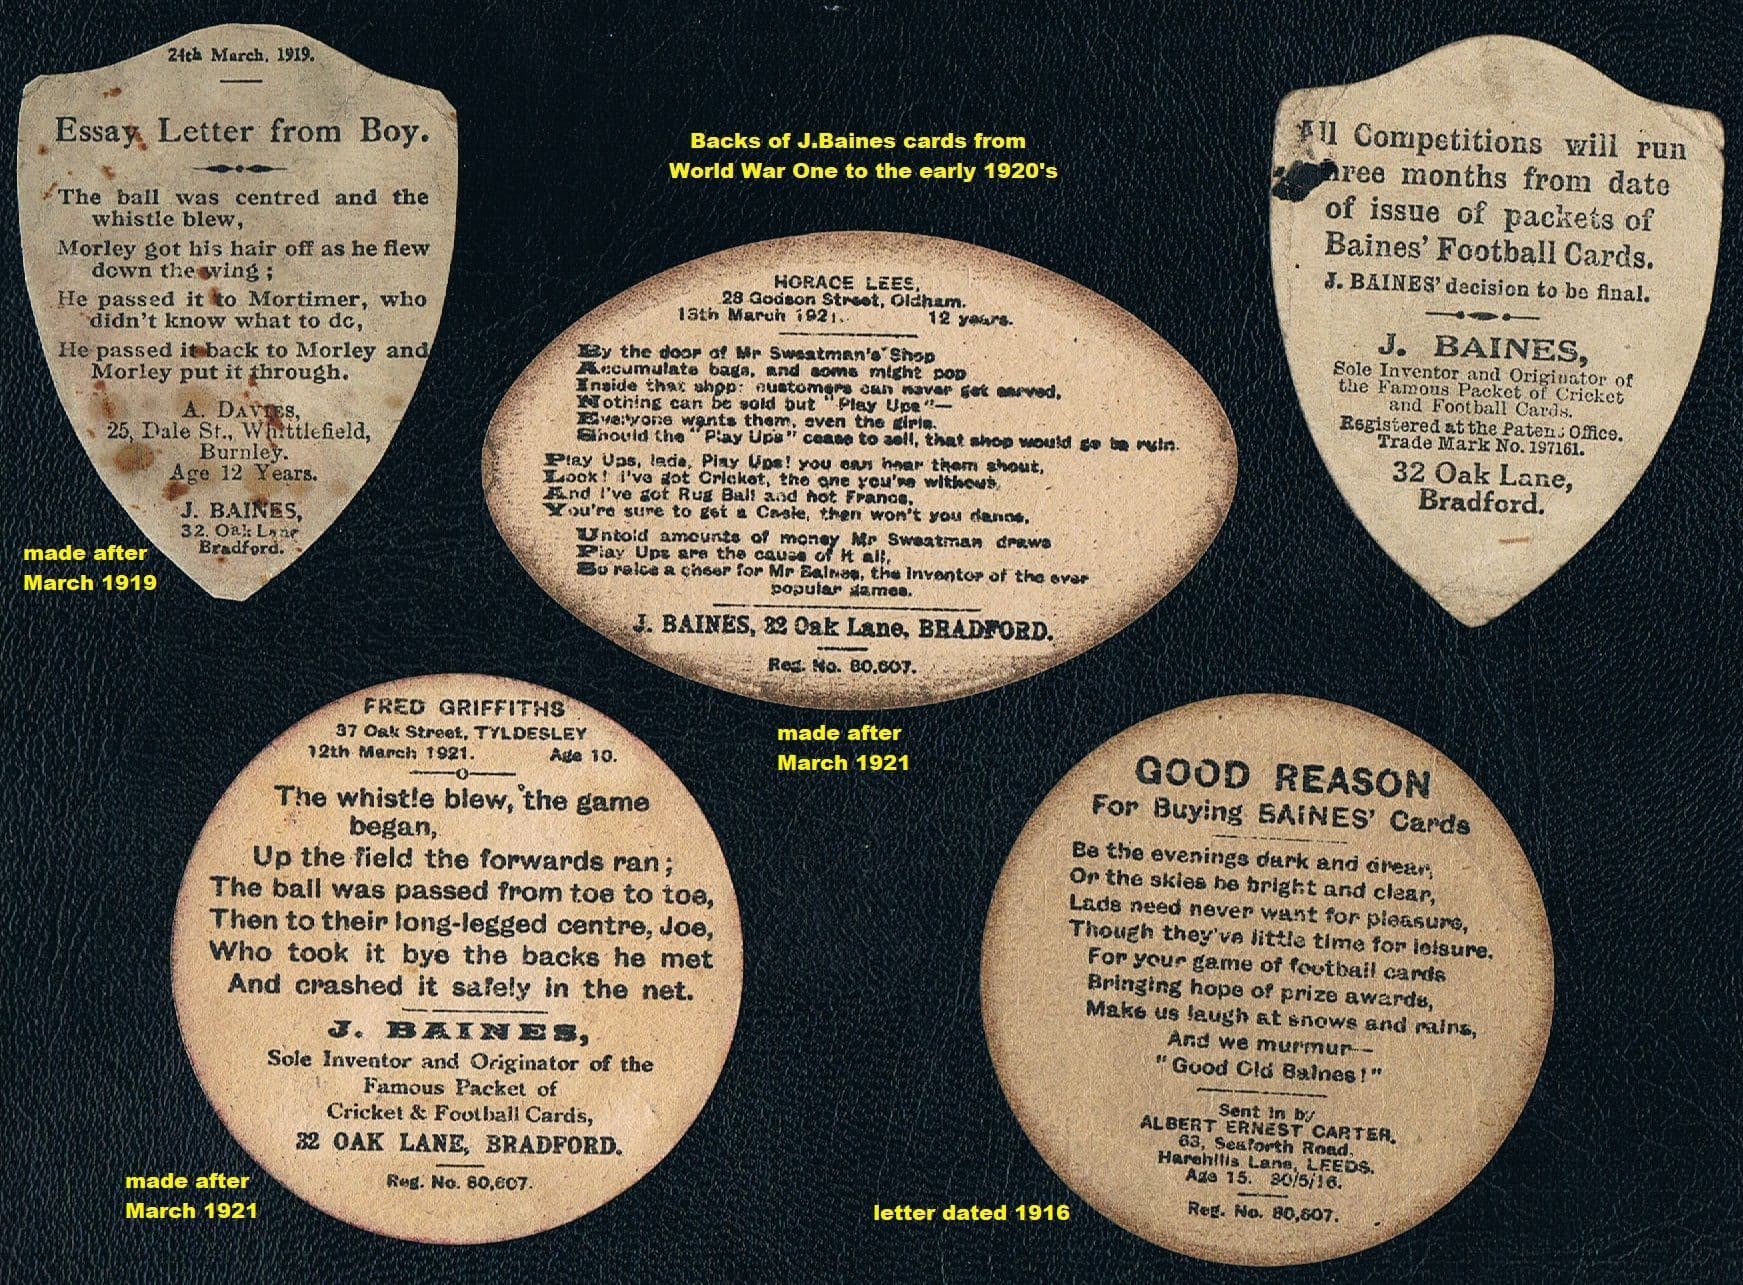 24th March, 1919.
Essay Letter from Boy.
The ball was centred and the
whistle blew,
Morley got his hair off as he flew
down the wing ;
He passed it to Mortimer, who
didn't know what to do,
He passed it back to Morley and
Morley put it through.
A. DAVIES,
25, Dale St., Whittlefield,
Burnley.
Age 12 Years.
J. BAINES,
32, Oak Lane
Bradford.
made after
March 1919
Backs of J.Baines cards from
World War One to the early 1920's
HORACE LEES,
28 Godson Street, Oldham.
13th March 1921. 12 years.
By the door of Mr Sweatman's Shop
Accumulate bags, and some might pop
Inside that shop: customers can never get served,
Nothing can be sold but "Play Ups"—
Everyone wants them, even the girls.
Should the "Play Ups" cease to sell, that shop would go to ruin.
Play Ups, lads, Play Ups! you can hear them shout,
Look! I've got Cricket, the one you're without,
And I've got Rug Ball and hot France,
You're sure to get a Casie, then won't you dance,
Untold amounts of money Mr Sweatman draws
Play Ups are the cause of it all,
So raise a cheer for Mr Baines, the inventor of the ever
popular games.
J. BAINES, 32 Oak Lane, BRADFORD.
Reg. No. 80,607.
made after
March 1921
All Competitions will run
three months from date
of issue of packets of
Baines' Football Cards.
J. BAINES' decision to be final.
J. BAINES,
Sole Inventor and Originator of
the Famous Packet of Cricket
and Football Cards.
Registered at the Patent Office.
Trade Mark No. 197161.
32 Oak Lane,
Bradford.
FRED GRIFFITHS
37 Oak Street, TYLDESLEY
12th March 1921. Age 10.
The whistle blew, the game
began,
Up the field the forwards ran ;
The ball was passed from toe to toe,
Then to their long-legged centre, Joe,
Who took it bye the backs he met
And crashed it safely in the net.
J. BAINES,
Sole Inventor and Originator of the
Famous Packet of
Cricket & Football Cards,
32 OAK LANE, BRADFORD.
Reg. No. 80,607.
made after
March 1921
GOOD REASON
For Buying BAINES' Cards
Be the evenings dark and drear,
Or the skies be bright and clear,
Lads need never want for pleasure,
Though they've little time for leisure.
For your game of football cards
Bringing hope of prize awards,
Make us laugh at snows and rains,
And we murmur—
"Good Old Baines!"
Sent in by
ALBERT ERNEST CARTER,
63, Seaforth Road,
Harehills Lane, LEEDS.
Age 15. 30/5/16.
Reg. No. 80,607.
letter dated 1916